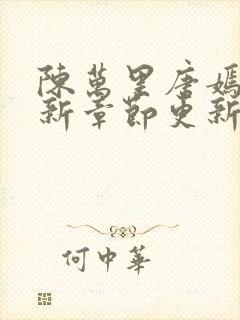 陳萬里唐嫣
新章節更新
何中華